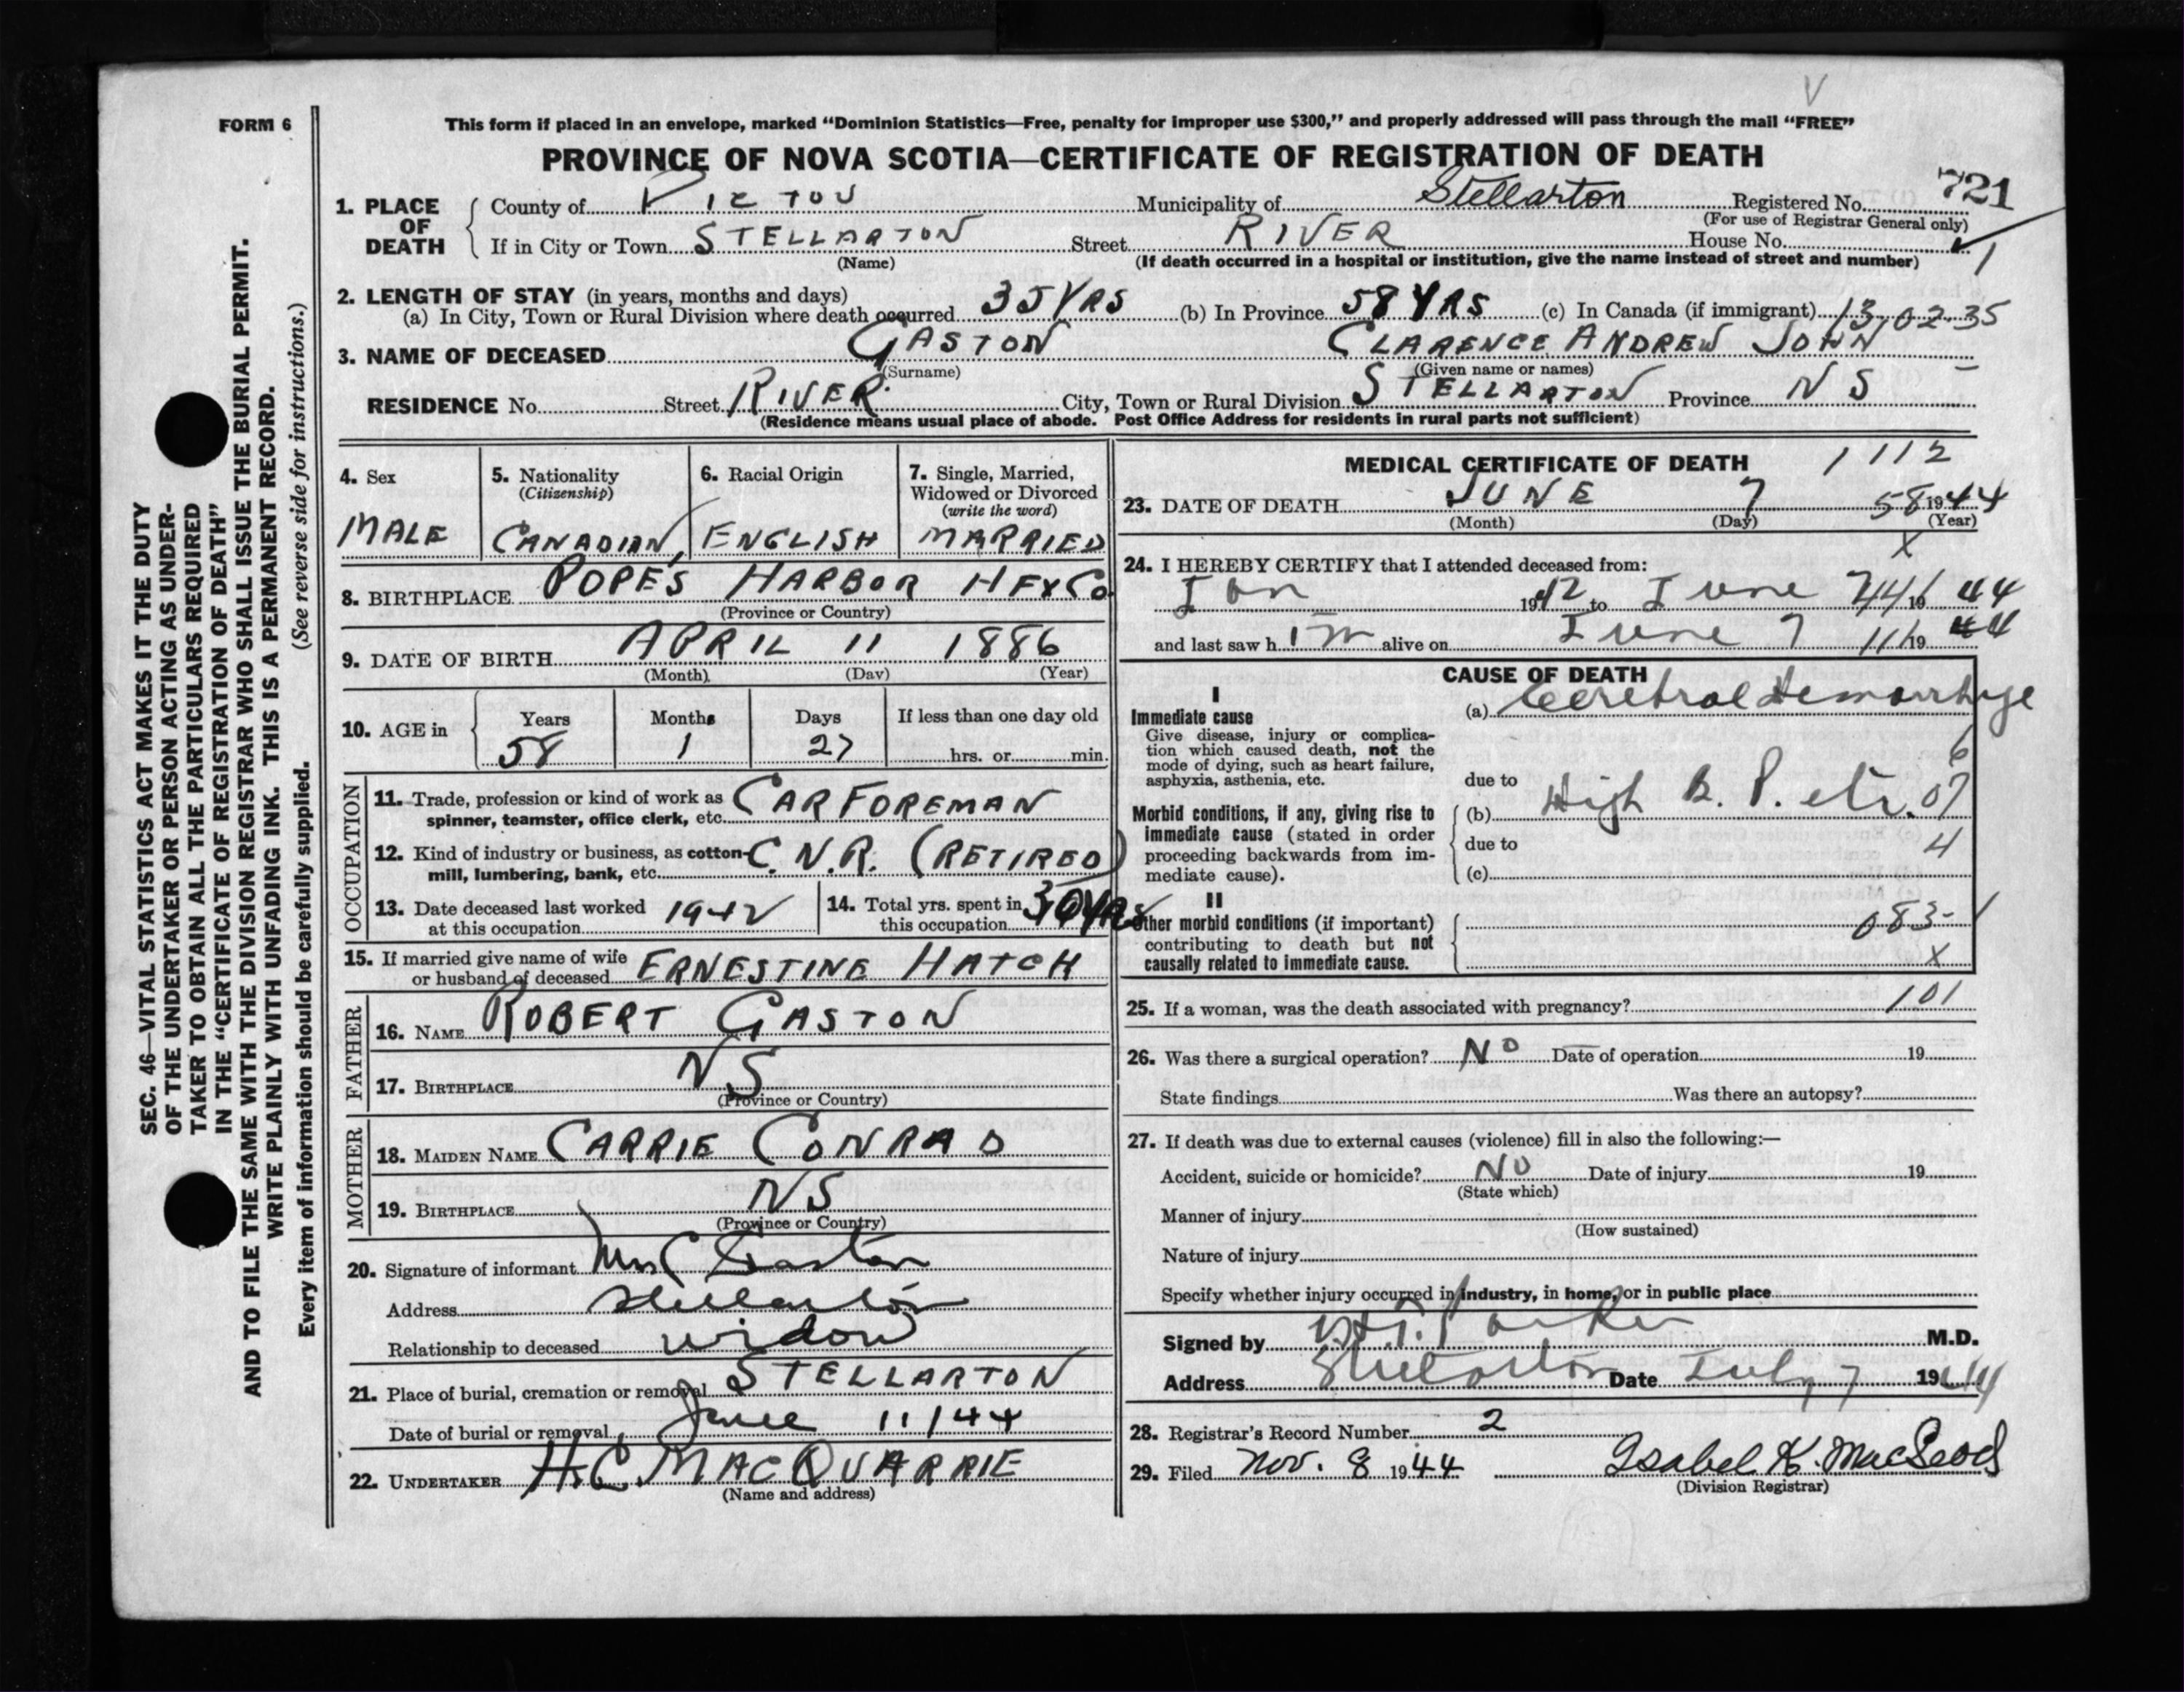 FORM 6
This form if placed in an envelope, marked “Dominion Statistics—Free, penalty for improper use $300,” and properly addressed will pass through the mail “FREE”
PROVINCE OF NOVA SCOTIA—CERTIFICATE OF REGISTRATION OF DEATH
721
1. PLACE OF DEATH County of PICTOU Municipality of Stellarton Registered No.
(For use of Registrar General only)
If in City or Town STELLARTON Street RIVER House No.
(Name) (If death occurred in a hospital or institution, give the name instead of street and number)
2. LENGTH OF STAY (in years, months and days)
(a) In City, Town or Rural Division where death occurred 35 YRS (b) In Province 58 YRS (c) In Canada (if immigrant) 13,02-35
3. NAME OF DECEASED GASTON CLARENCE ANDREW JOHN
(Surname) (Given name or names)
RESIDENCE No. Street RIVER City, Town or Rural Division STELLARTON Province N S
(Residence means usual place of abode. Post Office Address for residents in rural parts not sufficient)
4. Sex MALE
5. Nationality (Citizenship) CANADIAN
6. Racial Origin ENGLISH
7. Single, Married, Widowed or Divorced (write the word) MARRIED
8. BIRTHPLACE POPES HARBOR HFX CO
(Province or Country)
9. DATE OF BIRTH APRIL 11 1886
(Month) (Day) (Year)
10. AGE in Years 58 Months 1 Days 27 If less than one day old hrs. or min.
OCCUPATION
11. Trade, profession or kind of work as spinner, teamster, office clerk, etc. CAR FOREMAN
12. Kind of industry or business, as cotton-mill, lumbering, bank, etc. C.N.R. (RETIRED)
13. Date deceased last worked at this occupation 1942
14. Total yrs. spent in this occupation YRS
15. If married give name of wife or husband of deceased ERNESTINE HATCH
FATHER
16. NAME ROBERT GASTON
17. BIRTHPLACE NS
(Province or Country)
MOTHER
18. MAIDEN NAME CARRIE CONRAD
19. BIRTHPLACE NS
(Province or Country)
20. Signature of informant Mrs C Gaston
Address Stellarton
Relationship to deceased widow
21. Place of burial, cremation or removal STELLARTON
Date of burial or removal June 11/44
22. UNDERTAKER H.C. MACQUARRIE
(Name and address)
MEDICAL CERTIFICATE OF DEATH 1112
23. DATE OF DEATH JUNE 7 58 1944
(Month) (Day) (Year)
X
24. I HEREBY CERTIFY that I attended deceased from:
Jan 1942 to June 7 44 19 44
and last saw h im alive on June 7 11 19 44
CAUSE OF DEATH
I
Immediate cause
Give disease, injury or complication which caused death, not the mode of dying, such as heart failure, asphyxia, asthenia, etc.
(a) Cerebral Hemorrhage
6
due to
Morbid conditions, if any, giving rise to immediate cause (stated in order proceeding backwards from immediate cause).
(b) High B. P. etc. 07
due to 4
(c)
II
Other morbid conditions (if important) contributing to death but not causally related to immediate cause.
083-
X
25. If a woman, was the death associated with pregnancy? 101
26. Was there a surgical operation? No Date of operation 19
State findings Was there an autopsy?
27. If death was due to external causes (violence) fill in also the following:—
Accident, suicide or homicide? No Date of injury 19
(State which)
Manner of injury
(How sustained)
Nature of injury
Specify whether injury occurred in industry, in home, or in public place
Signed by Parker M.D.
Address Stellarton Date July 7 1944
28. Registrar's Record Number 2
29. Filed Nov. 8 1944 Isabel K. MacLeod
(Division Registrar)
SEC. 46—VITAL STATISTICS ACT MAKES IT THE DUTY
OF THE UNDERTAKER OR PERSON ACTING AS UNDER-
TAKER TO OBTAIN ALL THE PARTICULARS REQUIRED
IN THE “CERTIFICATE OF REGISTRATION OF DEATH”
AND TO FILE THE SAME WITH THE DIVISION REGISTRAR WHO SHALL ISSUE THE BURIAL PERMIT.
WRITE PLAINLY WITH UNFADING INK. THIS IS A PERMANENT RECORD.
Every item of information should be carefully supplied. (See reverse side for instructions.)